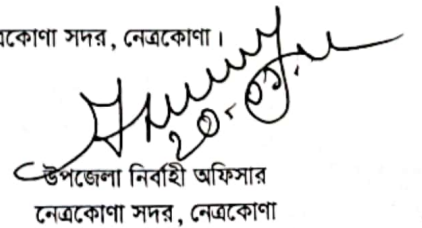 নেত্রকোণা সদর, নেত্রকোণা।
উপজেলা নির্বাহী অফিসার
নেত্রকোণা সদর, নেত্রকোণা